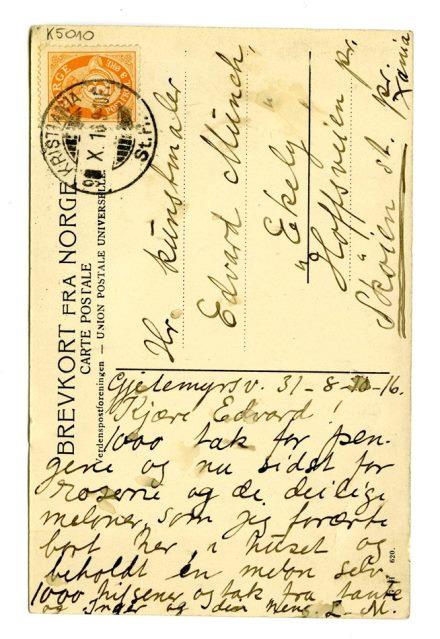 K5010
NORGE
KRISTIANIA
9 X. 16
St.P.
BREVKORT FRA NORGE
CARTE POSTALE
Verdenspostforeningen — UNION POSTALE UNIVERSELLE
Hr. kunstmaler
Edvard Münch,
"Ekely"
Hoffsveien pr.
Skøien st. pr.
Kania
Gjetemyrsv. 31-8-10-16.
Kjære Edvard!
1000 tak for pen-
gene og nu sidst for
roserne og de deilige
meloner, som jeg forærte
bort her i huset og
beholdt en melon selv
1000 hilsener og tak fra tante
og Inger og din heng. L. M.
620.